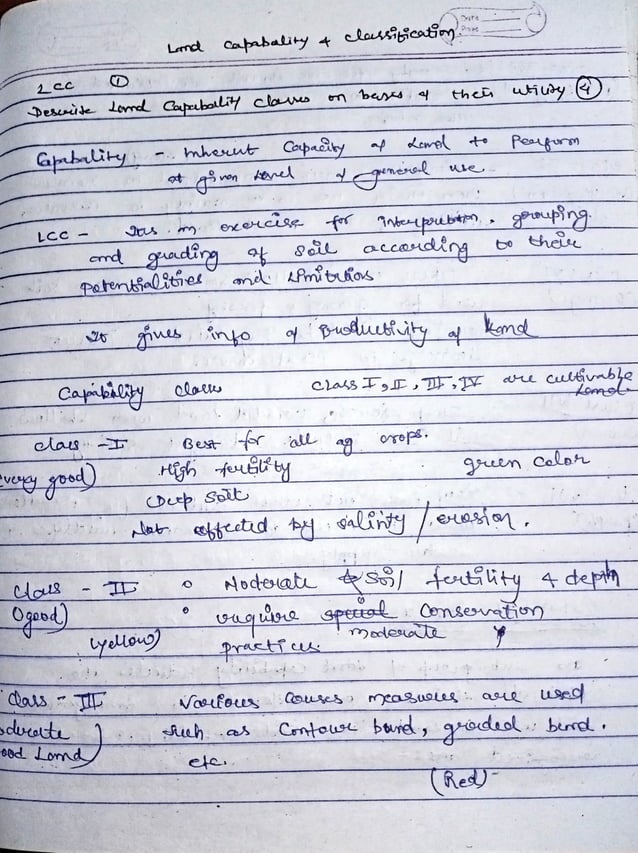 Land Capabality & classification
Date
Page
LCC ①
Describe Land Capabality classes on bases of their utility ④.
Capabality - Inherent Capacity of Land to Perform
at given level of general use
LCC - It is an exercise for interpretation, grouping
and grading of soil according to their
potentialities and Limitations
It gives info of Productivity of Land
Capability class class I, II, III, IV are cultivable
Land
class - I Best for all ag crops.
(very good) High fertility green color
Deep soil
Not affected by salinity / erosion.
Class - II o Moderate soil fertility & depth
(good) o require special conservation
(yellow) practices moderate
Class - III Various measures are used
Land) such as Contour bund, graded bund.
etc.
(Red)